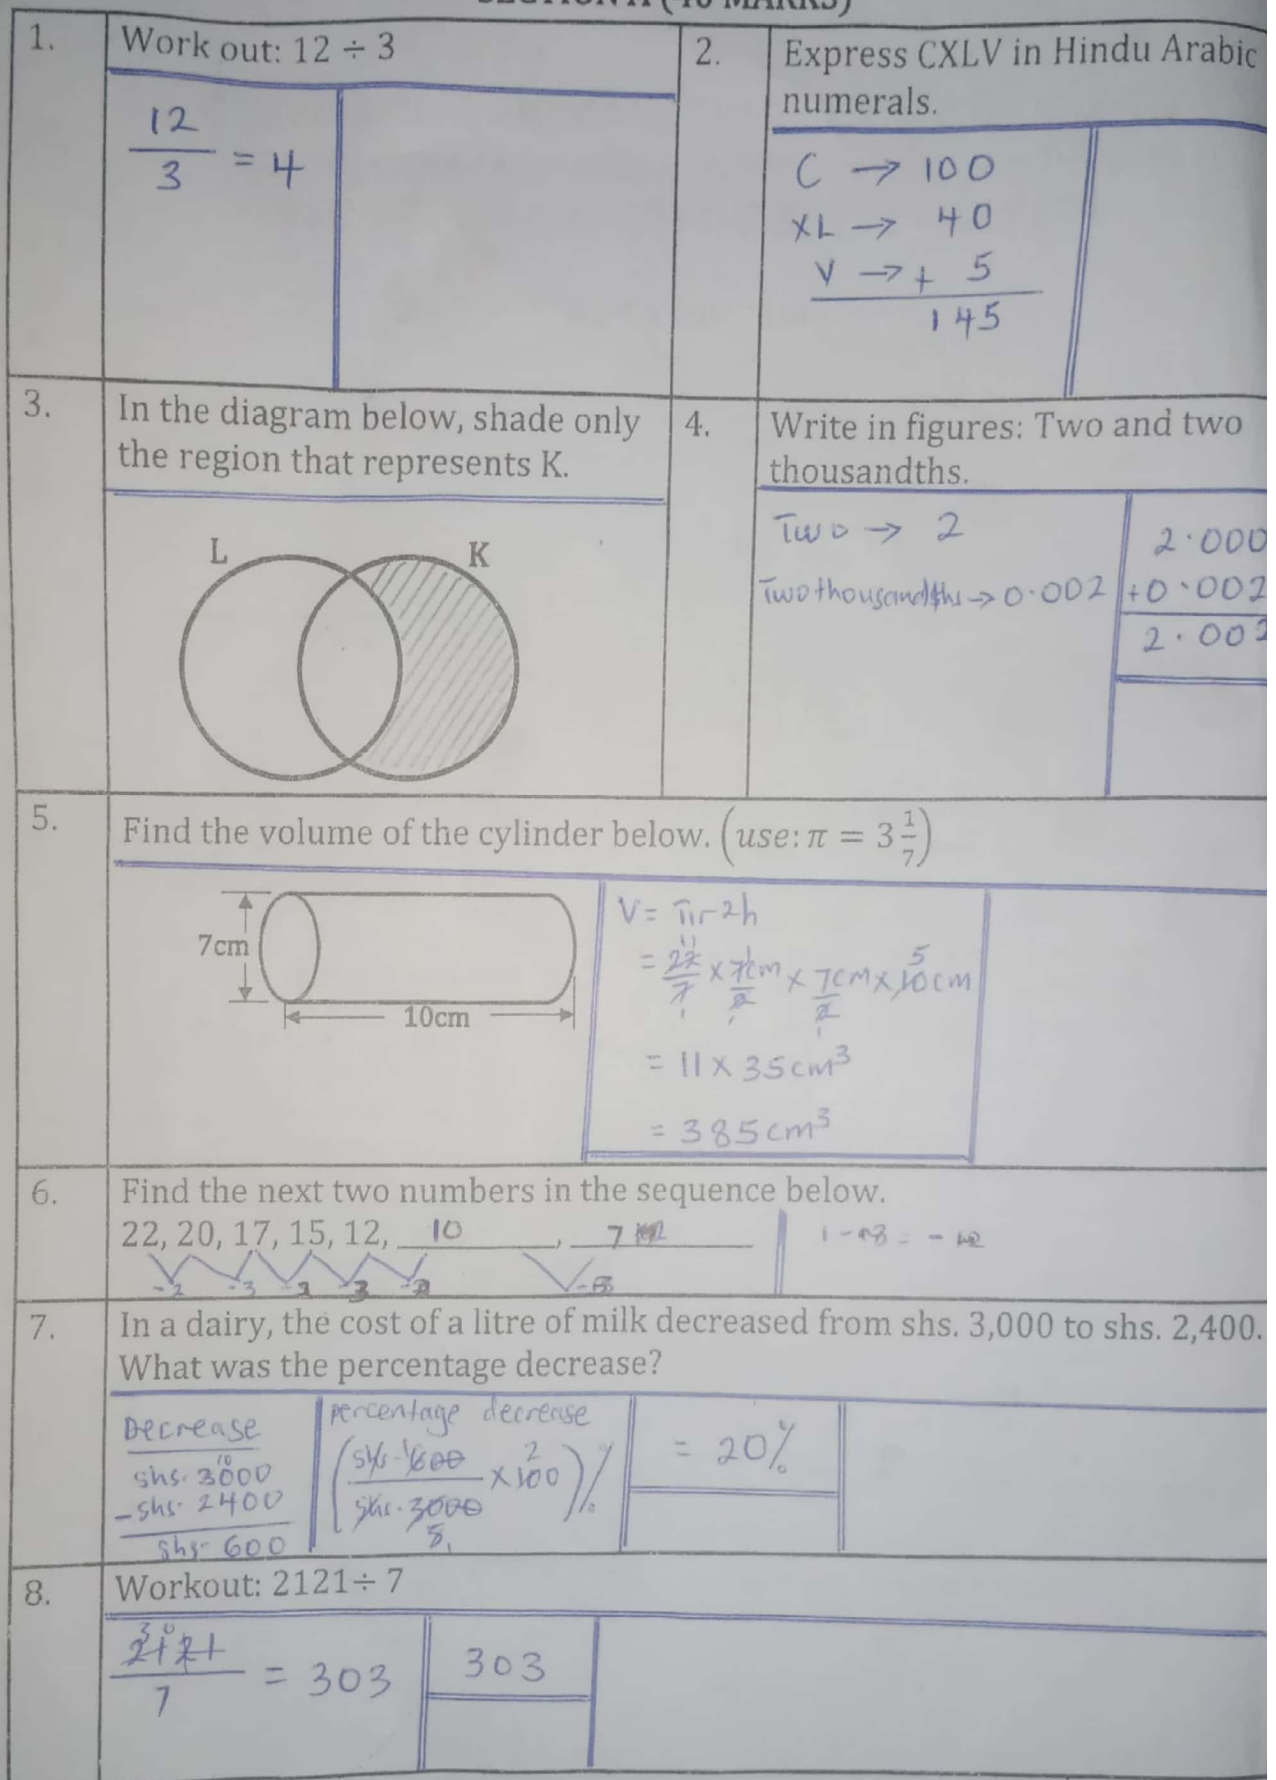 1. Work out: 12 ÷ 3
12/3 = 4
2. Express CXLV in Hindu Arabic
numerals.
C → 100
XL → 40
V → + 5
145
3. In the diagram below, shade only
the region that represents K.
L K
4. Write in figures: Two and two
thousandths.
Two → 2
Two thousandths → 0.002
2.000
+0.002
2.002
5. Find the volume of the cylinder below. (use: π = 3 1/7)
7cm
10cm
V = πr2h
= 22/7 × 7cm/2 × 7cm/2 × 10cm
= 11 × 35cm³
= 385cm³
6. Find the next two numbers in the sequence below.
22, 20, 17, 15, 12, 10, 7
-2 -3
7. In a dairy, the cost of a litre of milk decreased from shs. 3,000 to shs. 2,400.
What was the percentage decrease?
Decrease
shs. 3000
-shs. 2400
shs. 600
percentage decrease
(shs. 600/shs. 3000 × 100)%
= 20%
8. Workout: 2121÷ 7
2121/7 = 303
303